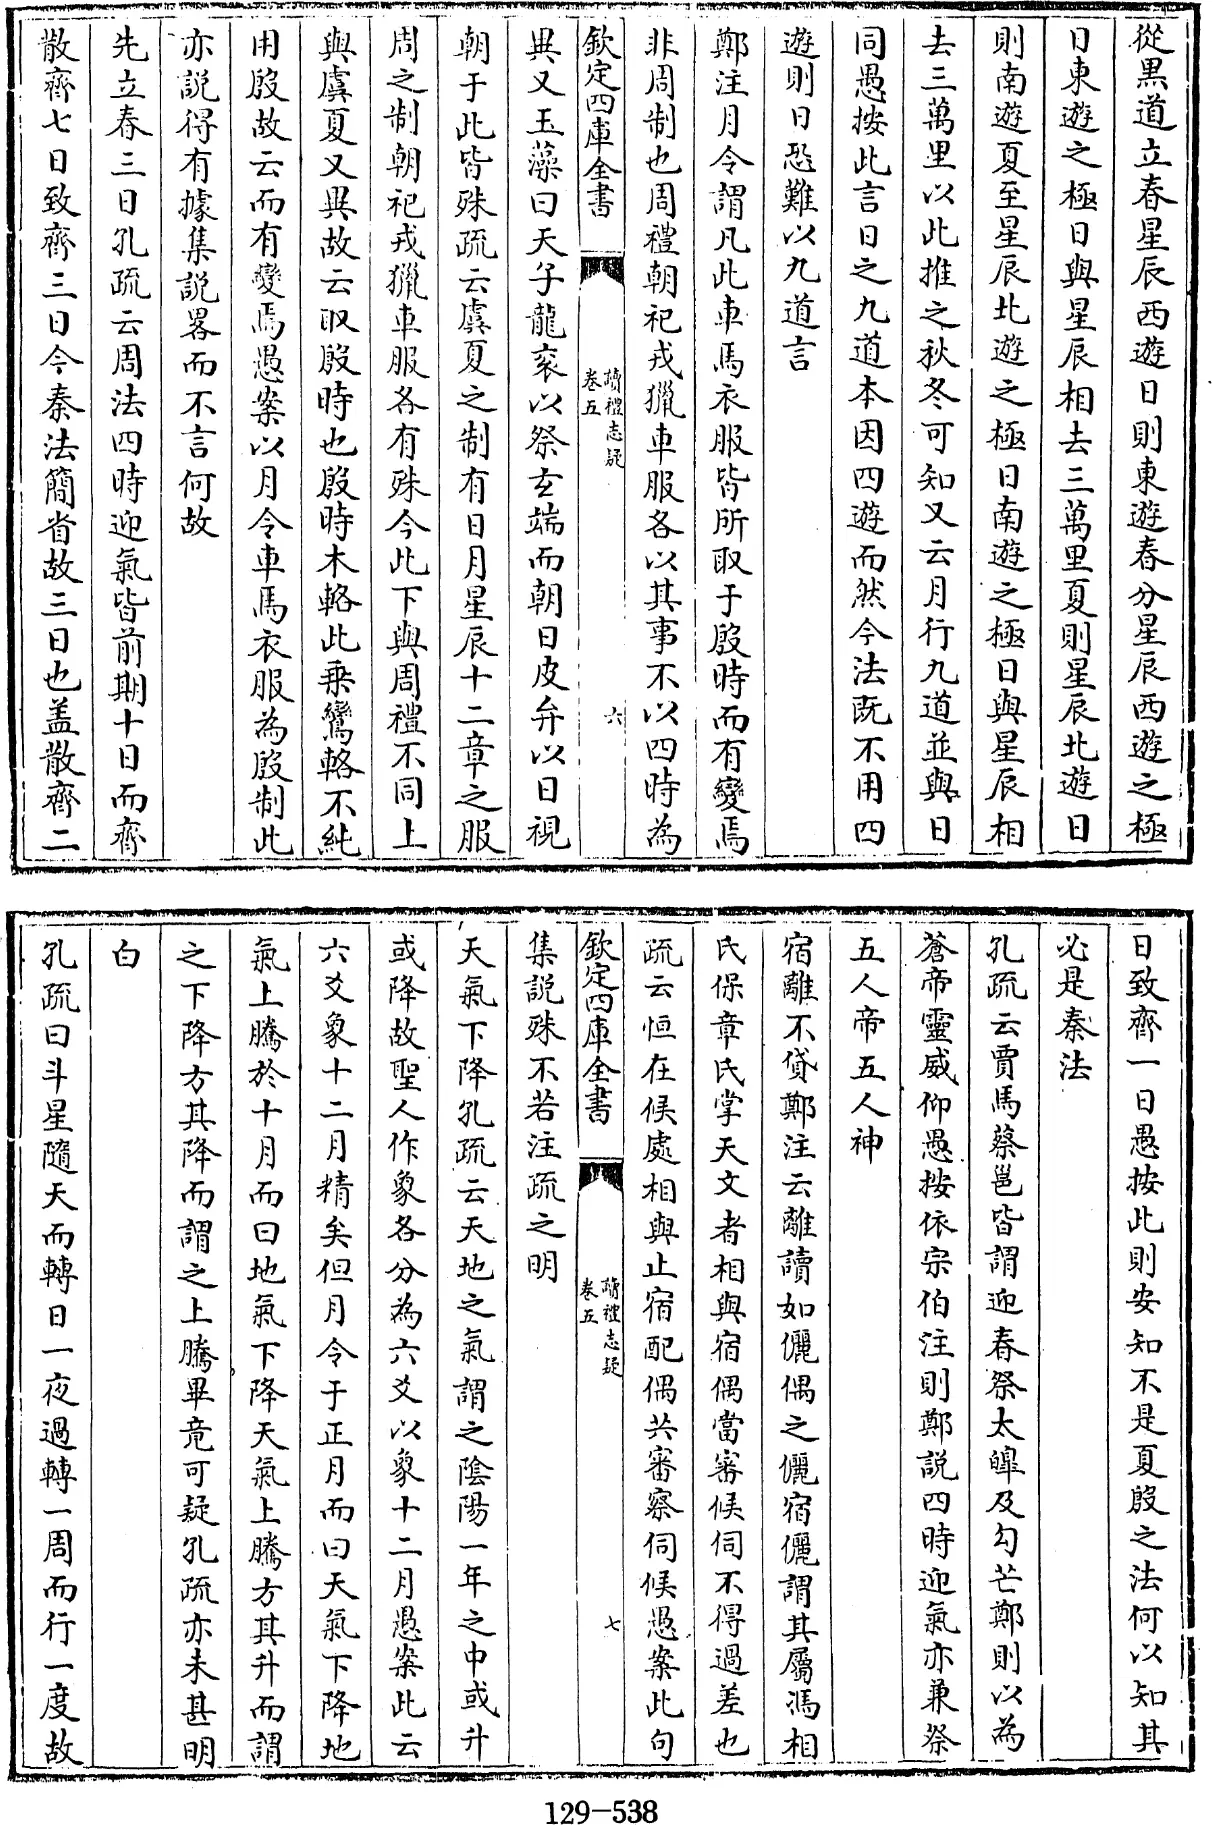 從黒道立春星辰西遊日則東遊春分星辰西遊之極
日東遊之極日與星辰相去三萬里夏則星辰北遊日
則南遊夏至星辰北遊之極日南遊之極日與星辰相
去三萬里以此推之秋冬可知又云月行九道並與日
同愚按此言日之九道本因四遊而然今法既不用四
遊則日恐難以九道言
鄭注月令謂凡此車馬衣服皆所取于殷時而有變焉
非周制也周禮朝祀戎獵車服各以其事不以四時為
欽定四庫全書
讀禮志疑
卷五
六
異又玉藻曰天子龍衮以祭玄端而朝日皮弁以日視
朝于此皆殊疏云虞夏之制有日月星辰十二章之服
周之制朝祀戎獵車服各有殊今此下與周禮不同上
與虞夏又異故云取殷時也殷時木輅此乗鸞輅不純
用殷故云而有變焉愚案以月令車馬衣服為殷制此
亦説得有據集説畧而不言何故
先立春三日孔疏云周法四時迎氣皆前期十日而齊
散齊七日致齊三日今秦法簡省故三日也盖散齊二
日致齊一日愚按此則安知不是夏殷之法何以知其
必是秦法
孔疏云賈馬蔡邕皆謂迎春祭太皥及勾芒鄭則以為
蒼帝靈威仰愚按依宗伯注則鄭説四時迎氣亦兼祭
五人帝五人神
宿離不貸鄭注云離讀如儷偶之儷宿儷謂其屬馮相
氏保章氏掌天文者相與宿偶當審候伺不得過差也
疏云恒在候處相與止宿配偶共審察伺候愚案此句
欽定四庫全書
讀禮志疑
卷五
七
集説殊不若注疏之明
天氣下降孔疏云天地之氣謂之陰陽一年之中或升
或降故聖人作象各分為六爻以象十二月愚案此云
六爻象十二月精矣但月令于正月而曰天氣下降地
氣上騰於十月而曰地氣下降天氣上騰方其升而謂
之下降方其降而謂之上騰畢竟可疑孔疏亦未甚明
白
孔疏曰斗星隨天而轉日一夜過轉一周而行一度故
129-538